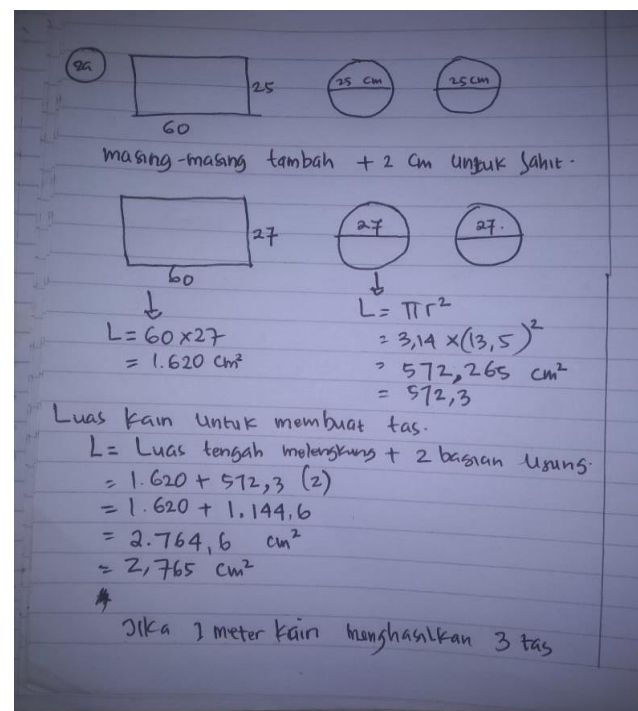 2a
25
60
25 cm
25 cm
masing-masing tambah + 2 cm untuk Jahit.
27
60
27
27.
L = 60 x 27
= 1.620 cm²
L = πr²
= 3,14 x (13,5)²
= 572,265 cm²
= 572,3
Luas kain untuk membuat tas.
L = Luas tengah melengkung + 2 bagian Ujung.
= 1.620 + 572,3 (2)
= 1.620 + 1.144,6
= 2.764,6 cm²
= 2,765 cm²
Jika 1 meter kain menghasilkan 3 tas